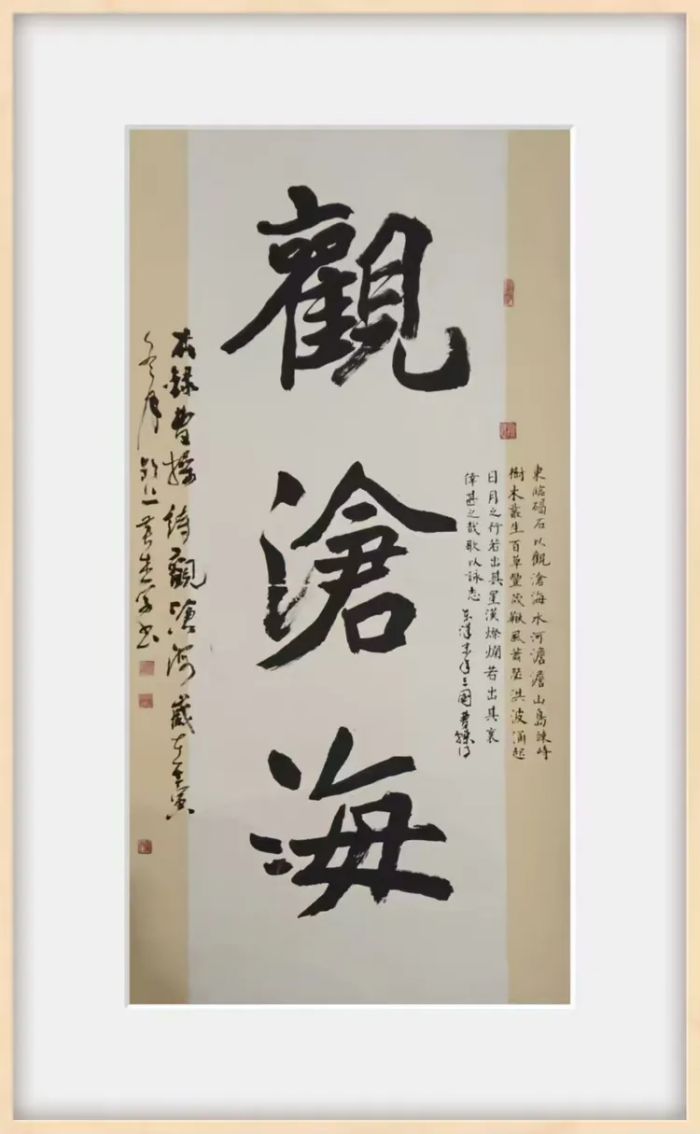 觀滄海
東臨碣石以觀滄海水河澹澹山島竦峙
樹木叢生百草豐茂秋風蕭瑟洪波涌起
日月之行若出其星漢燦爛若出其裏
甚之哉歌以詠志 东漢末年三國曹操
錄曹操詩觀滄海歲在壬寅
冬月 書